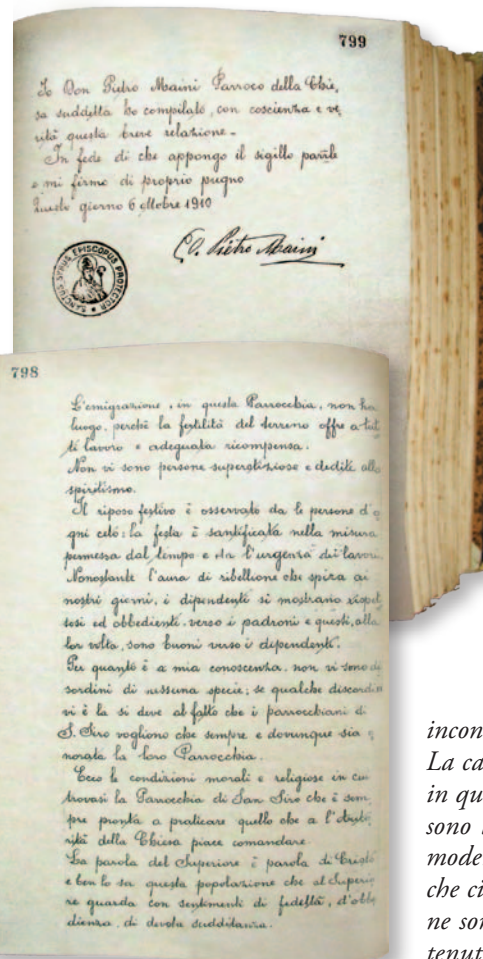 799
Io Don Pietro Maini Parroco della Chie,
sa suddetta ho compilato, con coscienza e ve,
rità questa breve relazione.
In fede di che appongo il sigillo parrle
e mi firmo di proprio pugno
Questo giorno 6 ottobre 1910
D. Pietro Maini
SANCTUS SYRUS EPISCOPUS PROTECTOR
798
L'emigrazione, in questa Parrocchia, non ha
luogo, perchè la fertilità del terreno offre a tut
ti lavoro e adeguata ricompensa.
Non vi sono persone superstiziose e dedite allo
spiritismo.
Il riposo festivo è osservato da le persone d'o
gni ceto: la festa è santificata nella misura
permessa dal tempo e da l'urgenza di lavoro.
Nonostante l'aura di ribellione che spira ai
nostri giorni, i dipendenti si mostrano rispet
tosi ed obbedienti verso i padroni e questi, alla
lor volta, sono buoni verso i dipendenti.
Per quanto è a mia conoscenza, non vi sono di
sordini di nissuna specie; se qualche discordia
vi è la si deve al fatto che i parrocchiani di
S. Siro vogliono che sempre e dovunque sia o
norata la loro Parrocchia.
Ecco le condizioni morali e religiose in cui
trovasi la Parrocchia di San Siro che è sem,
pre pronta a praticare quello che a l'Auto
rità della Chiesa piace comandare.
La parola del Superiore è parola di Cristo
e ben lo sa questa popolazione che al Superio
re guarda con sentimenti di fedeltà, d'obbe
dienza, di devota sudditanza.
incon
La ca
in qu
sono
mode
che ci
ne son
tenut